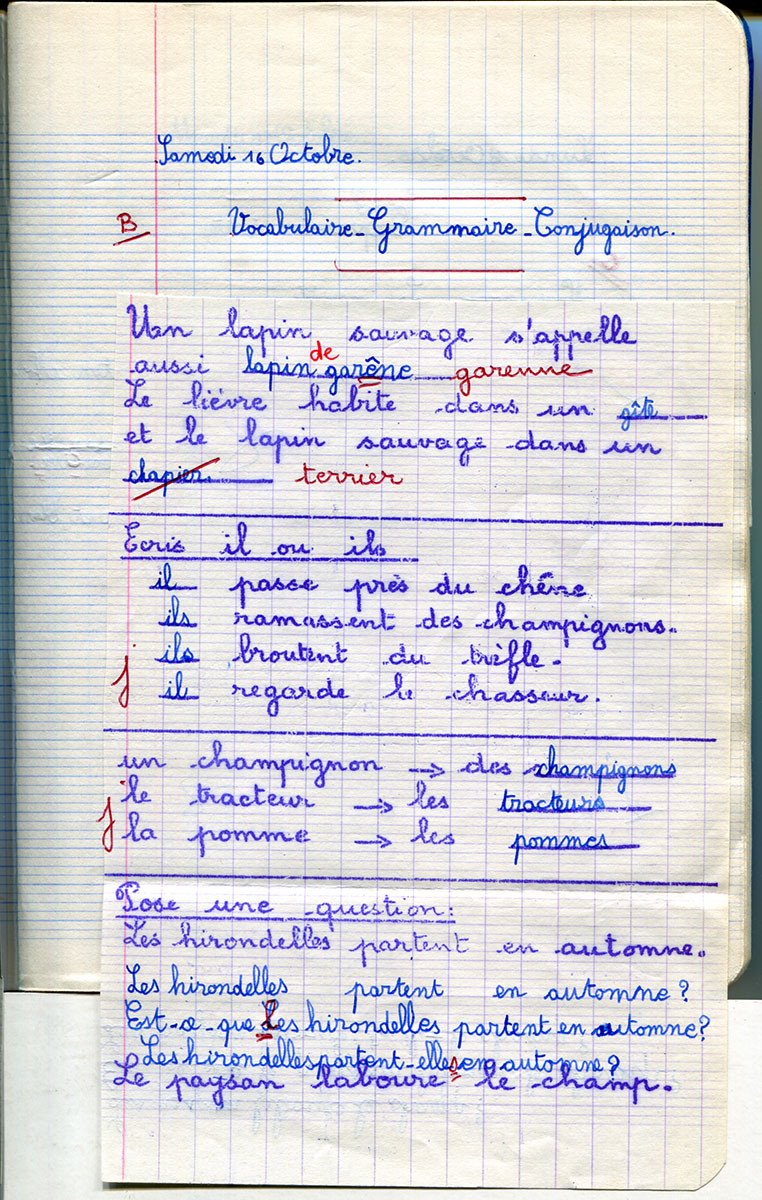 Samedi 16 Octobre.
B Vocabulaire - Grammaire - Conjugaison.
Un lapin sauvage s'appelle
aussi lapin de garêne garenne
Le lièvre habite dans un gîte
et le lapin sauvage dans un
chapier. terrier
Ecris il ou ils
il passe près du chêne
ils ramassent des champignons.
ils broutent du trèfle.
j il regarde le chasseur.
un champignon → des champignons
le tracteur → les tracteurs
j la pomme → les pommes
Pose une question:
Les hirondelles partent en automne.
Les hirondelles partent en automne ?
Est-ce-que Les hirondelles partent en automne?
Les hirondelles partent-elles en automne?
Le paysan laboure le champ.